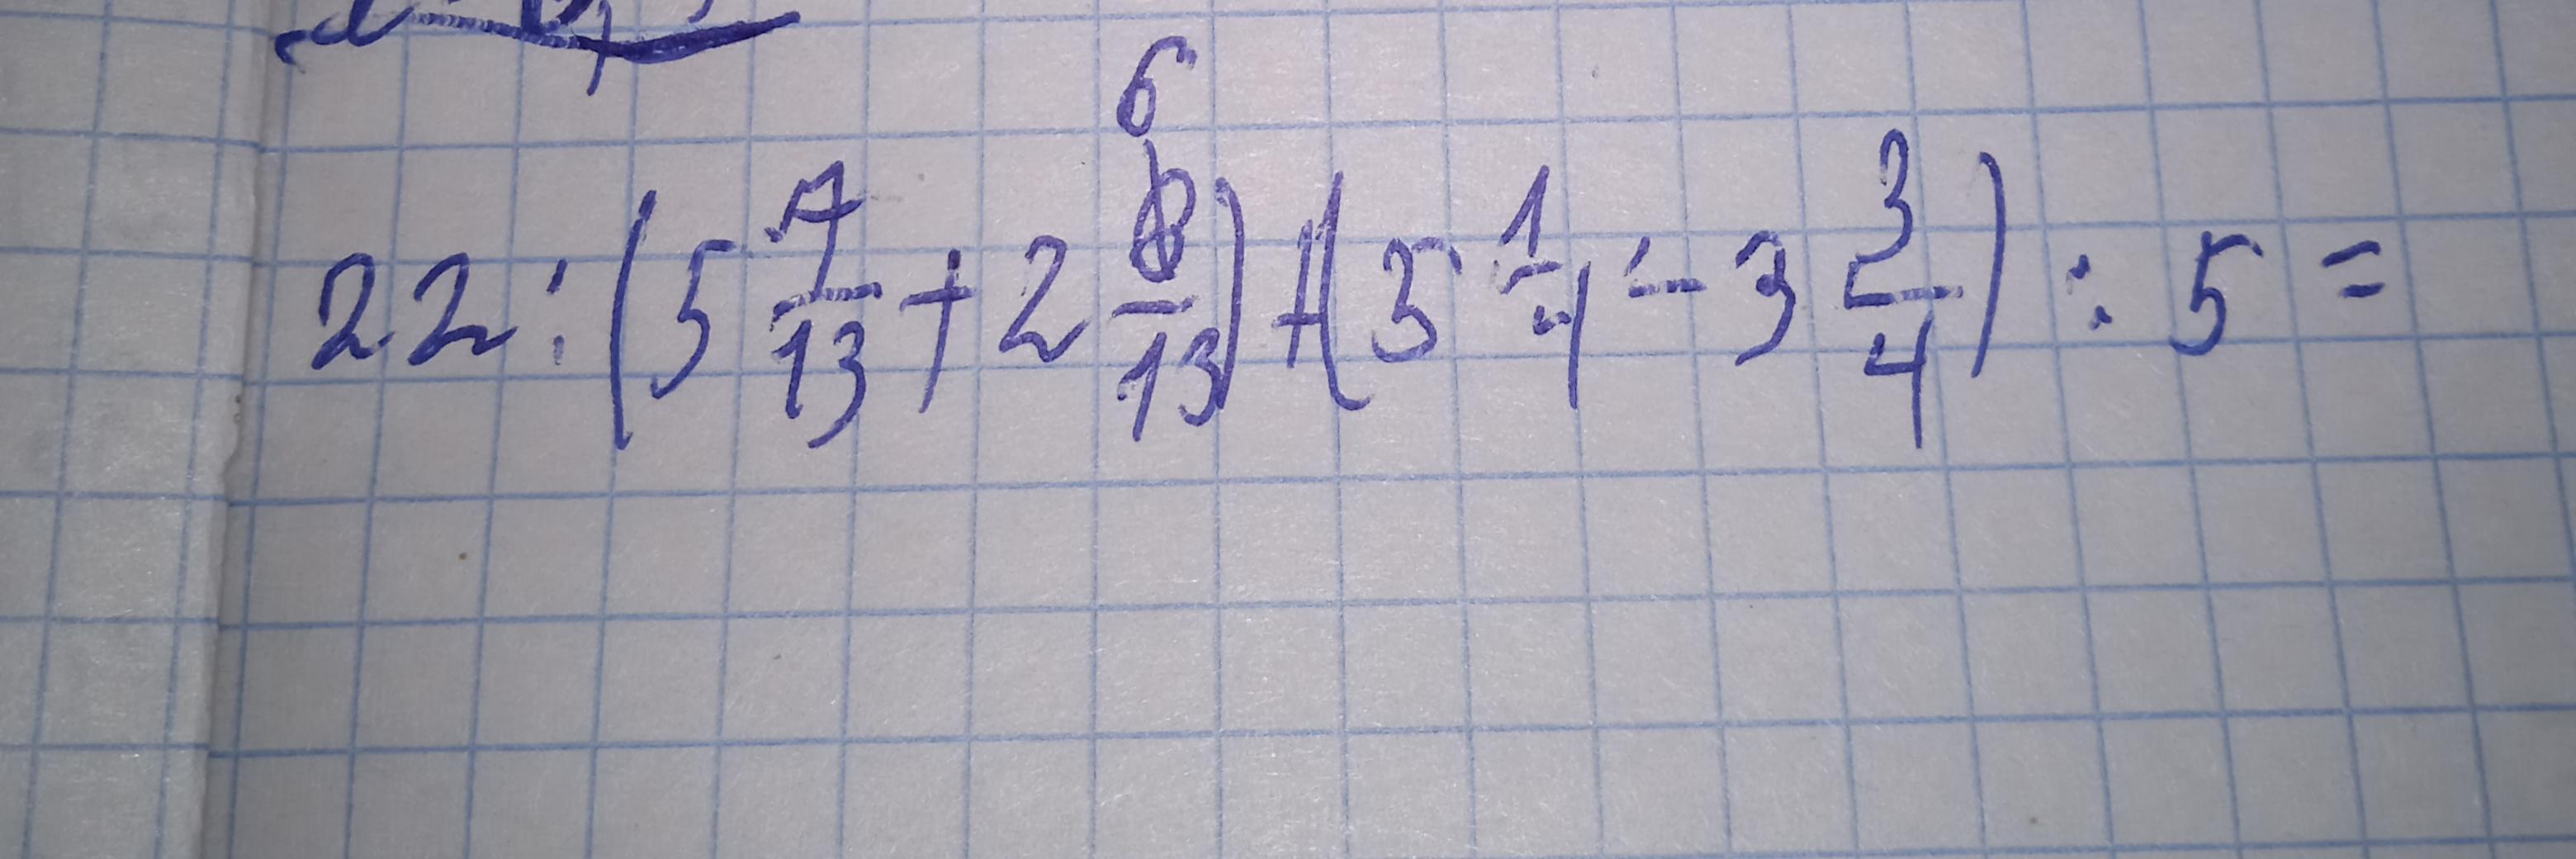 22 : (5 7/13 + 2 6/13) + (5 1/4 - 3 3/4) : 5 =